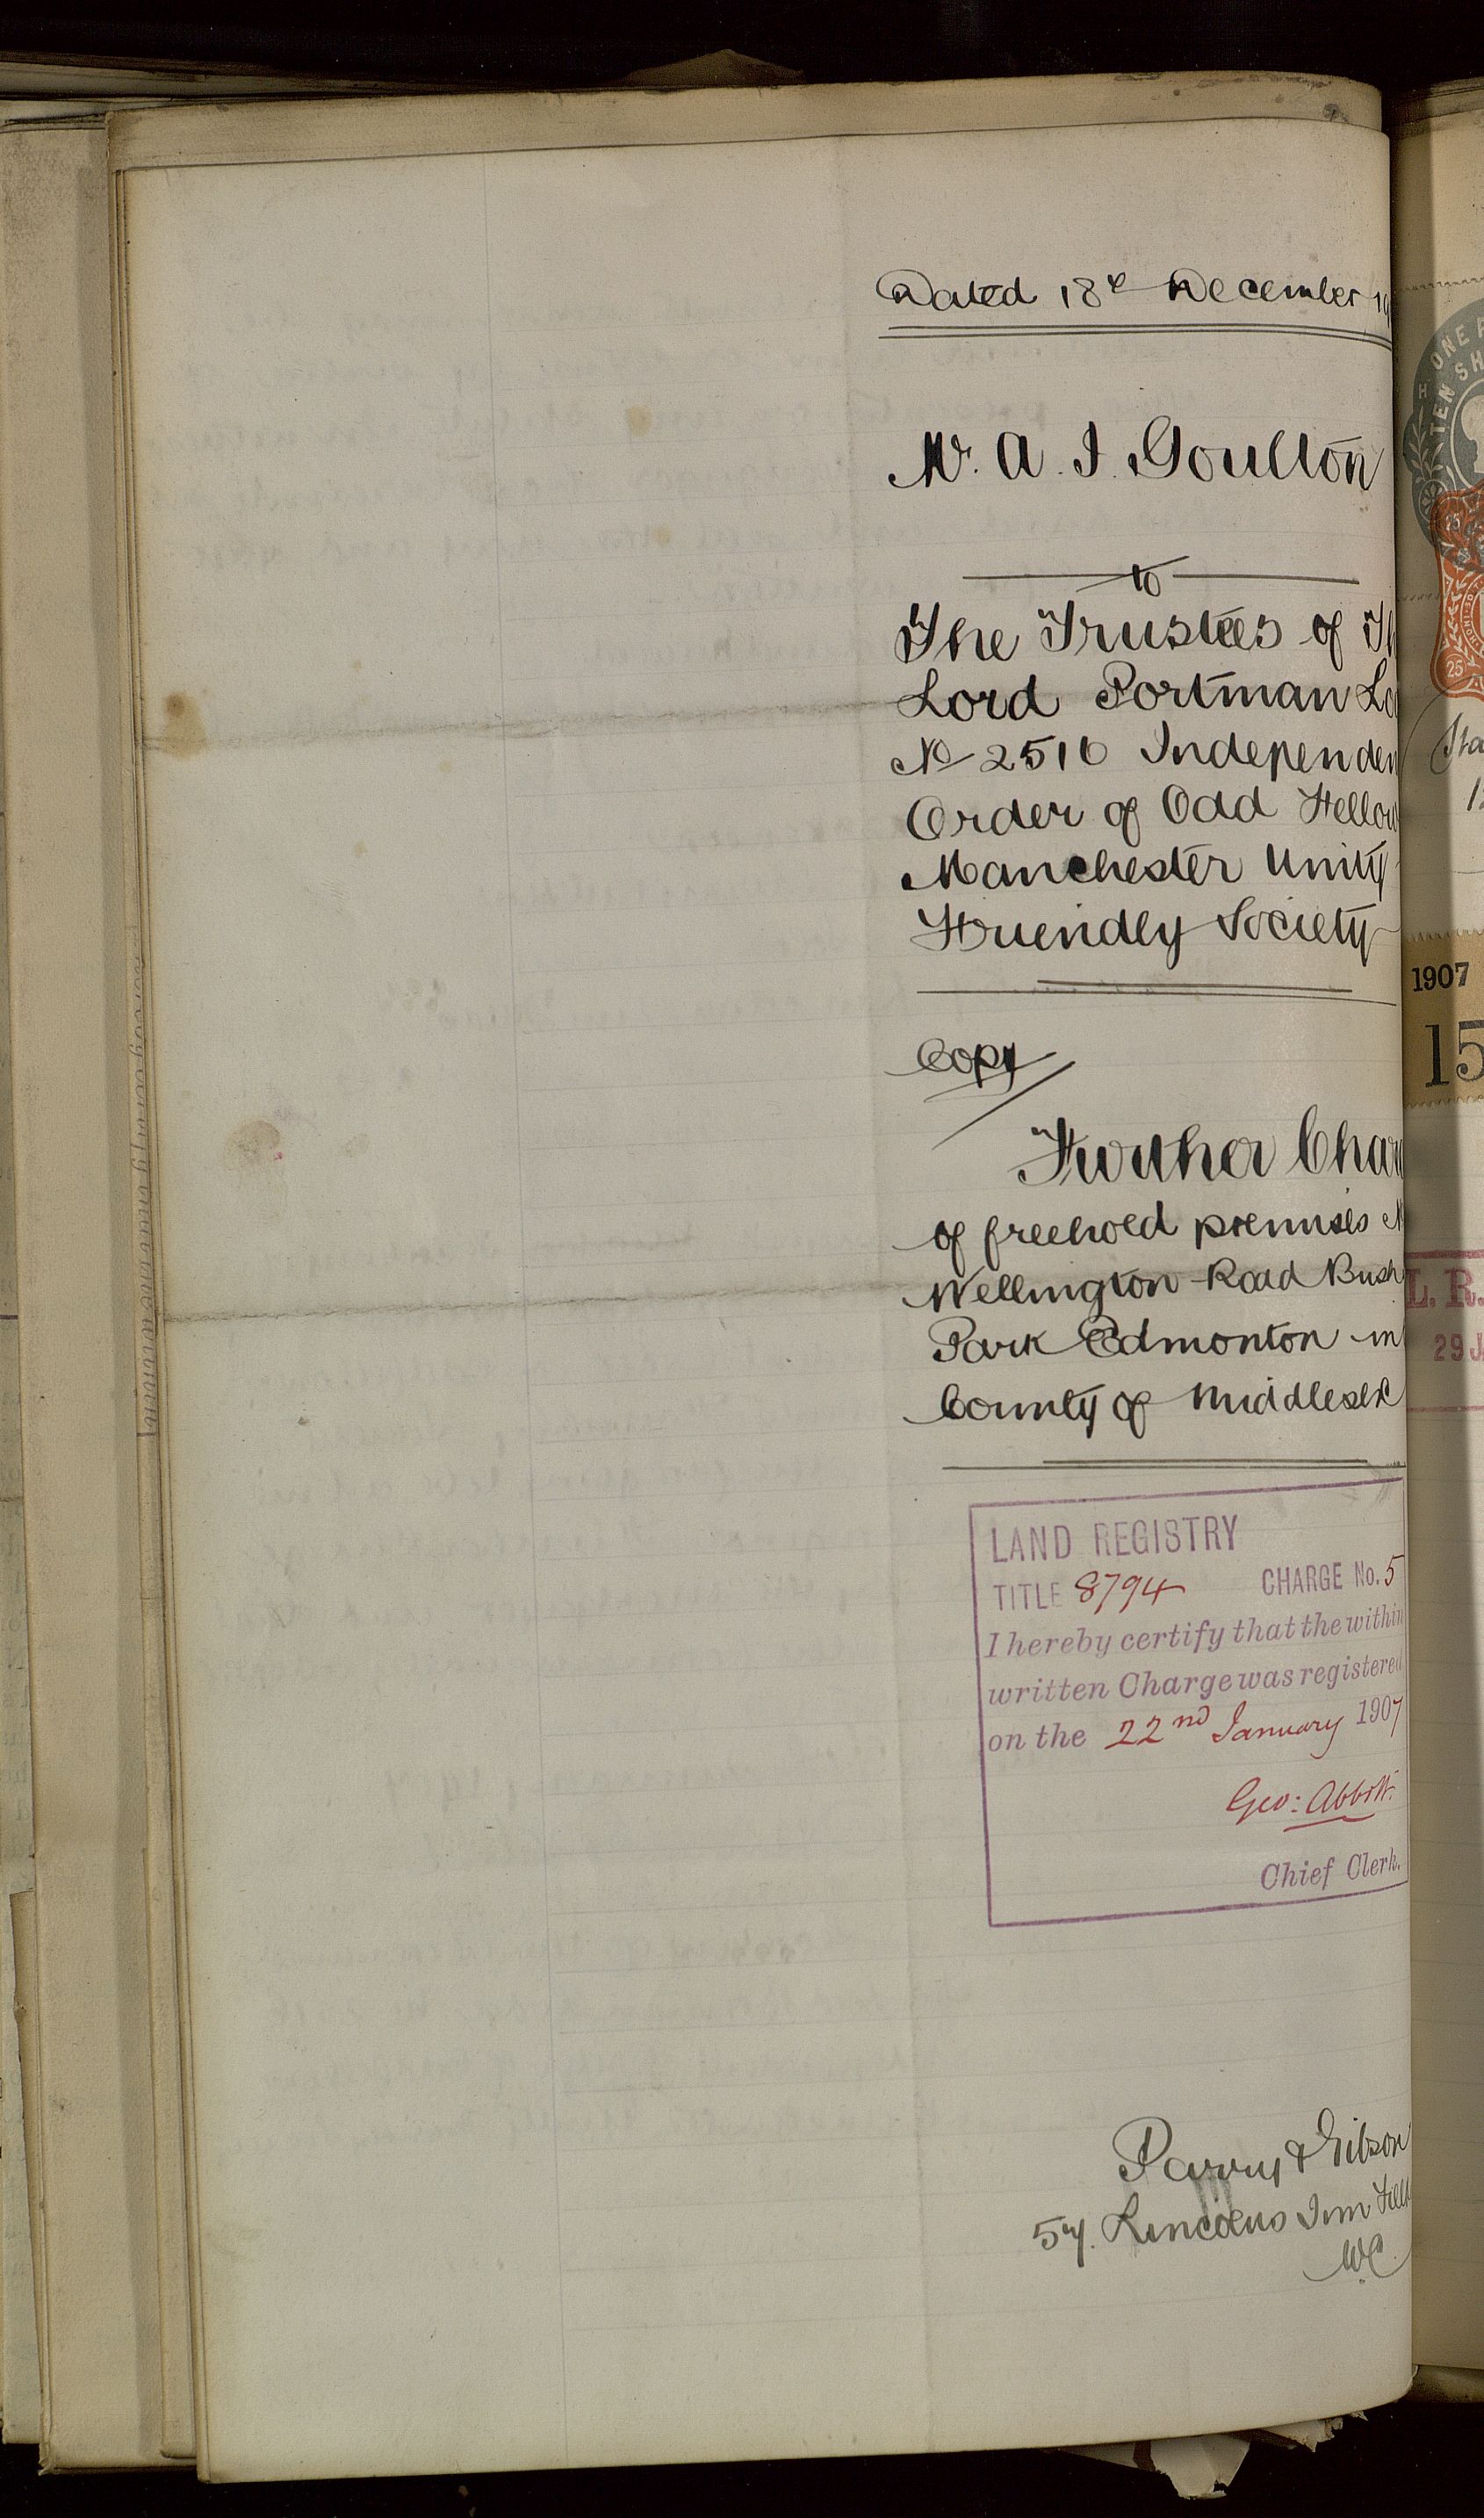 Dated 18th December 19
Mr. A. I. Goulton
to
The Trustees of Th
Lord Portman Lo
No 2516 Independen
Order of Odd Fellow
Manchester Unity
Friendly Society
Copy
Further Char
of freehold premises N
Wellington Road Bush
Park Edmonton in
County of Middlesex
LAND REGISTRY
TITLE 8794 CHARGE No. 5
I hereby certify that the within
written Charge was registered
on the 22nd January 1907
Geo: Abbott.
Chief Clerk.
Parry & Gibson
57. Lincolns Inn Fields
W.C.
H ONE P
TEN SH
25
25
Sta
1907
15
L. R.
29 J